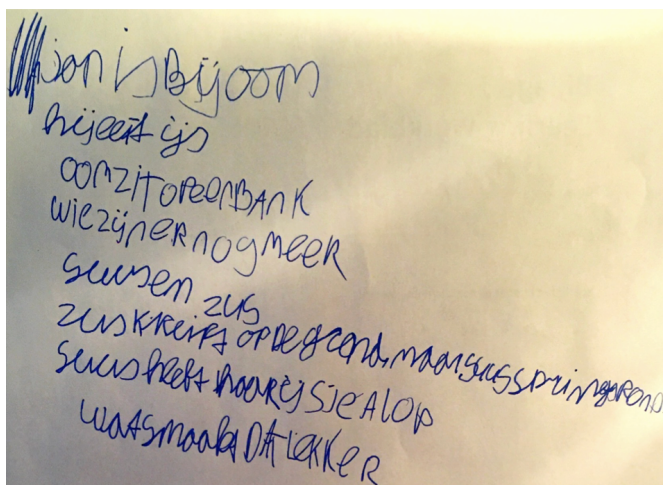 jon is Bij oom
hij eet ijs
oom ZIT OP EEN BANK
wie zijn ER nog meer
suus en zus
zus kruipt op DE grond, maar suus springt ROND
suus heeft haar ijsje Al op
wat smaakt DAT lekkeR